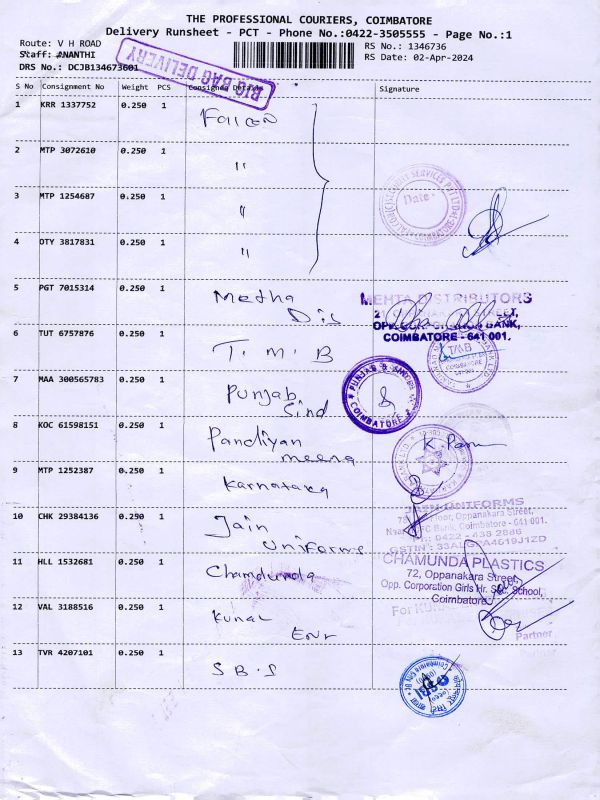 THE PROFESSIONAL COURIERS, COIMBATORE
Delivery Runsheet - PCT - Phone No.:0422-3505555 - Page No.:1
Route: V H ROAD
RS No.: 1346736
Staff: ANANTHI
RS Date: 02-Apr-2024
DRS No.: DCJB134673601
BIG BAG DELIVERY
S No Consignment No Weight PCS Consignee Details Signature
1 KRR 1337752 0.250 1
2 MTP 3072610 0.250 1 "
3 MTP 1254687 0.250 1 "
Date
4 OTY 3817831 0.250 1 "
5 PGT 7015314 0.250 1 Metha Dis
MEHTA DISTRIBUTORS
BANK,
COIMBATORE - 641 001.
6 TUT 6757876 0.250 1 T. M. B
TMB
7 MAA 300565783 0.250 1 Punjab Sind
PUNJAB & SIND
COIMBATORE
8 KOC 61598151 0.250 1 Pandiyan meena
9 MTP 1252387 0.250 1 Karnataka
10 CHK 29384136 0.250 1 Jain uniforms
JAIN UNIFORMS
Floor, Oppanakara Street,
Bank, Coimbatore - 641 001.
11 HLL 1532681 0.250 1 Chamdunda
CHAMUNDA PLASTICS
72, Oppanakara Street,
Opp. Corporation Girls Hr. Sec. School,
Coimbatore
12 VAL 3188516 0.250 1 Kunal Enr
Partner
13 TVR 4207101 0.250 1 S B. S